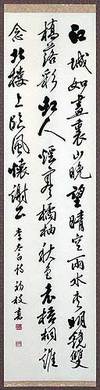 江城如畫裏山曉望晴空兩水夾明鏡雙
橋落彩虹人煙寒橘柚秋色老梧桐誰
念北樓上臨風懷謝公 李太白詩 書